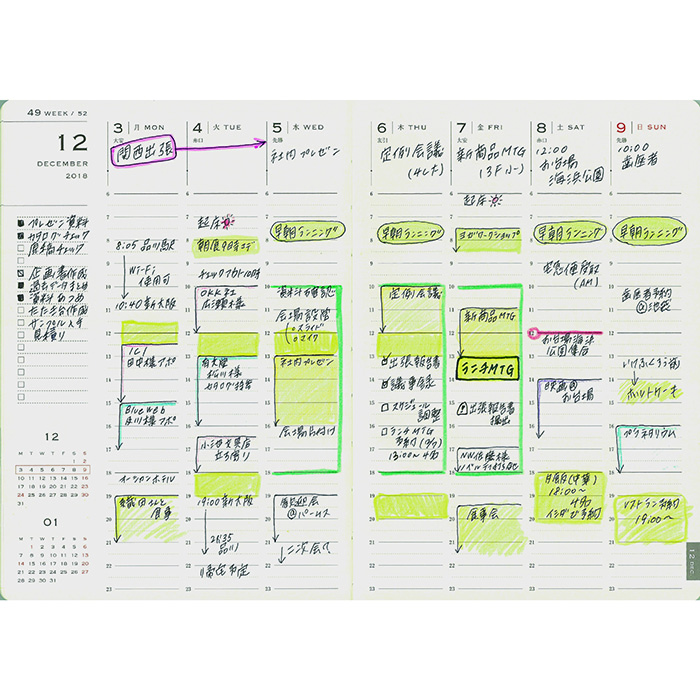 49 WEEK / 52
12
DECEMBER
2018
プレゼン資料
カタログチェック
原稿チェック
企画書作成
過去データまとめ
資料あつめ
たたき台作成
サンプル入手
見積り
12
M T W T F S S
1 2
3 4 5 6 7 8 9
10 11 12 13 14 15 16
17 18 19 20 21 22 23
24 25 26 27 28 29 30
31
01
M T W T F S S
1 2 3 4 5 6
7 8 9 10 11 12 13
14 15 16 17 18 19 20
21 22 23 24 25 26 27
28 29 30 31
3 月 MON
大安
関西出張
8:05 品川駅
Wi-Fi
使用可
10:40 新大阪
ICI
田中様アポ
Blue web
及川様アポ
オーシャンホテル
織田さんと
食事
4 火 TUE
赤口
起床
朝食9時まで
チェックアウト10時
OKK社
広瀬様
南大阪
松川様
カタログ持参
小池文具店
立ち寄り
19:00 新大阪
21:35
品川
帰宅予定
5 水 WED
先勝
社内プレゼン
早朝ランニング
資料村確認
会場設営
スライド
マイク
社内プレゼン
会場片付け
歓迎会
@パームス
二次会へ
6 木 THU
友引
定例会議
早朝ランニング
定例会議
出張報告書
議事録
スケジュール
調整
ランチMTG
18:00〜4名
7 金 FRI
大安
新商品MTG
起床
ヨガワークショップ
新商品MTG
ランチMTG
出張報告書
提出
NW佐藤様
食事会
8 土 SAT
赤口
12:00
お台場
海浜公園
早朝ランニング
宅急便受取
(AM)
お台場海浜
公園集合
映画@
お台場
夕食(中華)
18:00〜
4名
9 日 SUN
先勝
10:00
歯医者
早朝ランニング
歯医者予約
@池袋
いけふくろう前
ホットケーキ
プラネタリウム
レストラン予約
19:00〜
12 DEC